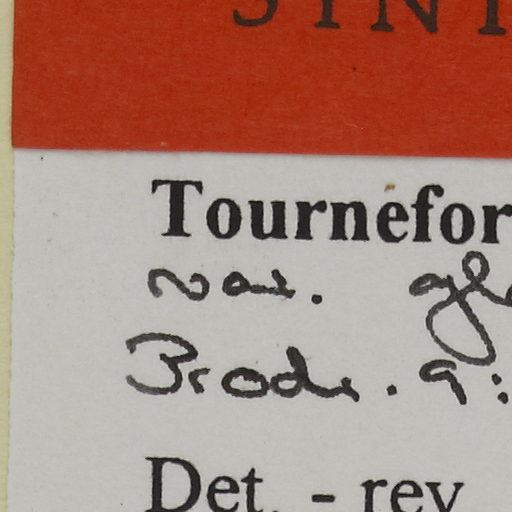 SYNT
Tournefor
var. gla
Prodr. 9:
Det. - rev